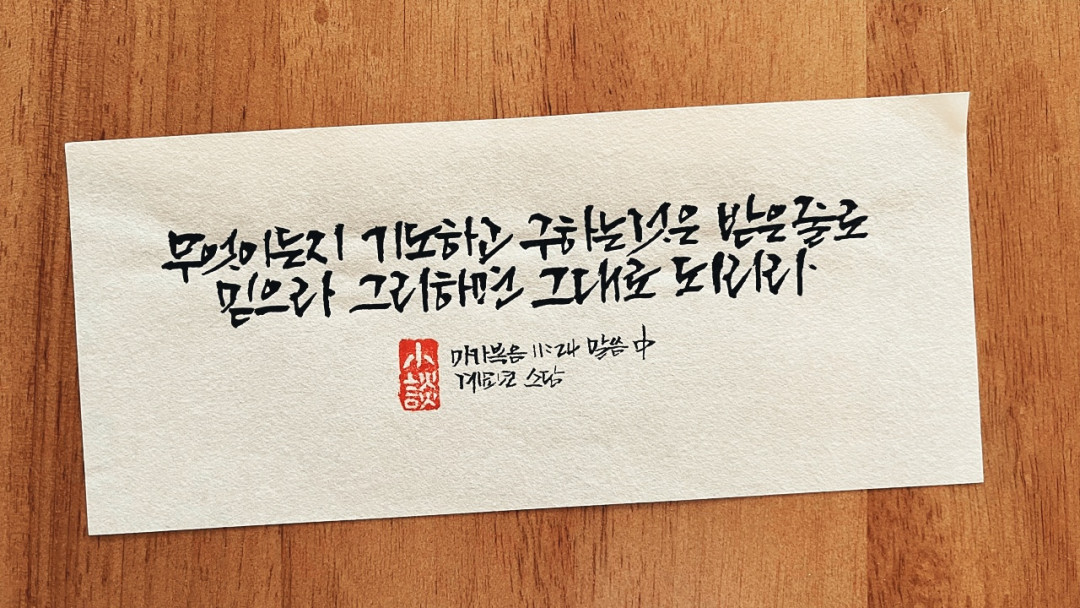 무엇이든지 기도하고 구하는것은 받은줄로
믿으라 그리하면 그대로 되리라.
小談
마가복음 11:24 말씀 中
소담